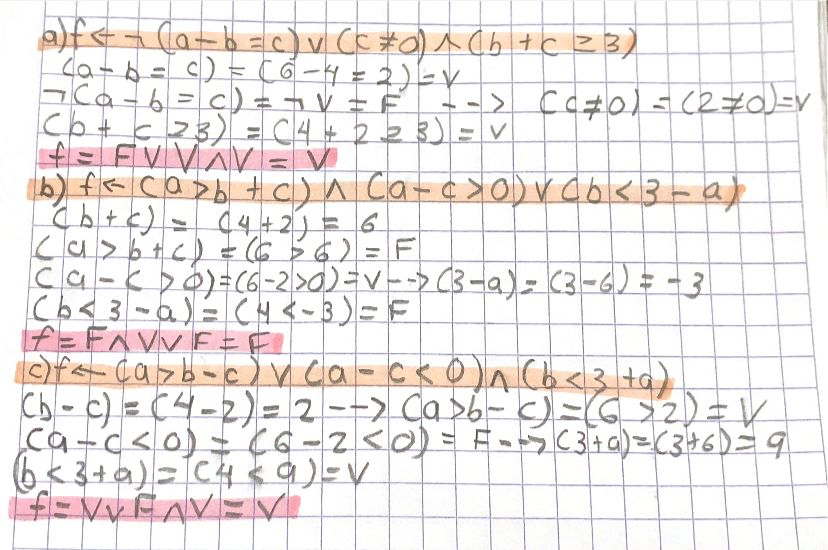 a) f ← ¬ (a - b = c) ∨ (c ≠ 0) ∧ (b + c ≥ 3)
(a - b = c) = (6 - 4 = 2) = V
¬ (a - b = c) = ¬ V = F --> (c ≠ 0) = (2 ≠ 0) = V
(b + c ≥ 3) = (4 + 2 ≥ 3) = V
f = F ∨ V ∧ V = V
b) f ← (a > b + c) ∧ (a - c > 0) ∨ (b < 3 - a)
(b + c) = (4 + 2) = 6
(a > b + c) = (6 > 6) = F
(a - c > 0) = (6 - 2 > 0) = V --> (3 - a) = (3 - 6) = -3
(b < 3 - a) = (4 < -3) = F
f = F ∧ V ∨ F = F
c) f ← (a > b - c) ∨ (a - c < 0) ∧ (b < 3 + a)
(b - c) = (4 - 2) = 2 --> (a > b - c) = (6 > 2) = V
(a - c < 0) = (6 - 2 < 0) = F --> (3 + a) = (3 + 6) = 9
(b < 3 + a) = (4 < 9) = V
f = V ∨ F ∧ V = V